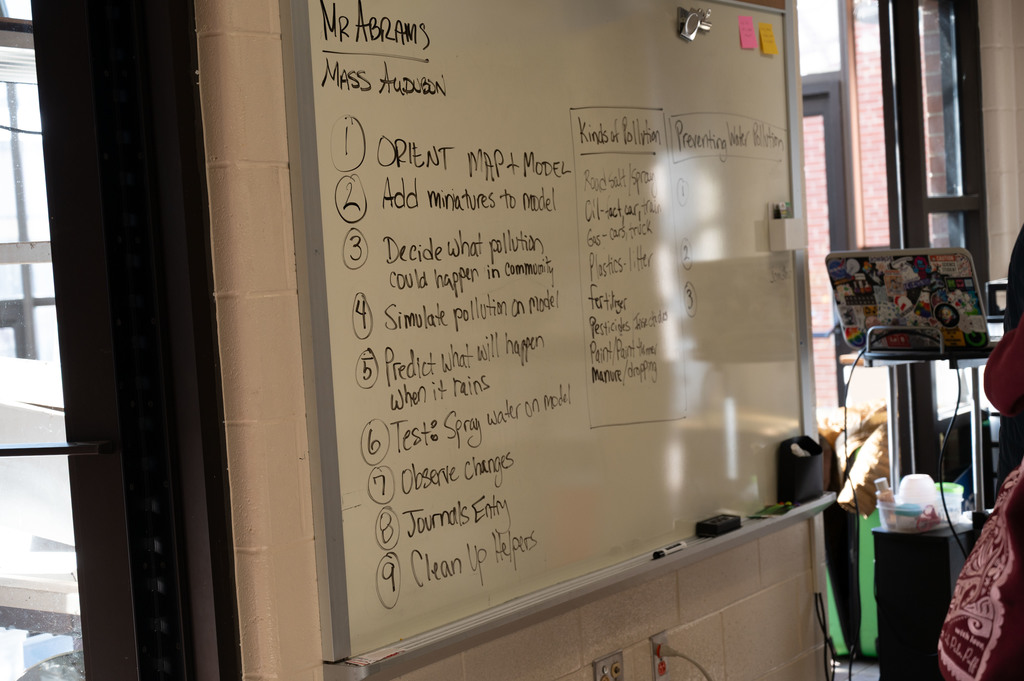 MR ABRAMS
MASS AUDUBON
1 ORIENT MAP + MODEL
2 Add miniatures to model
3 Decide what pollution
could happen in community
4 Simulate pollution on model
5 Predict what will happen
when it rains
6 Test: Spray water on model
7 Observe changes
8 Journals Entry
9 Clean Up Helpers
Kinds of Pollution
Road salt/spray
Oil-
Gas- cars, truck
Plastics-litter
fertilizer
Pesticides
Paint/Paint thinner
Manure/dropping
Preventing Water Pollution
1
2
3
with love